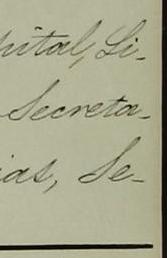 pital, Li-
Secreta-
ias, Se-